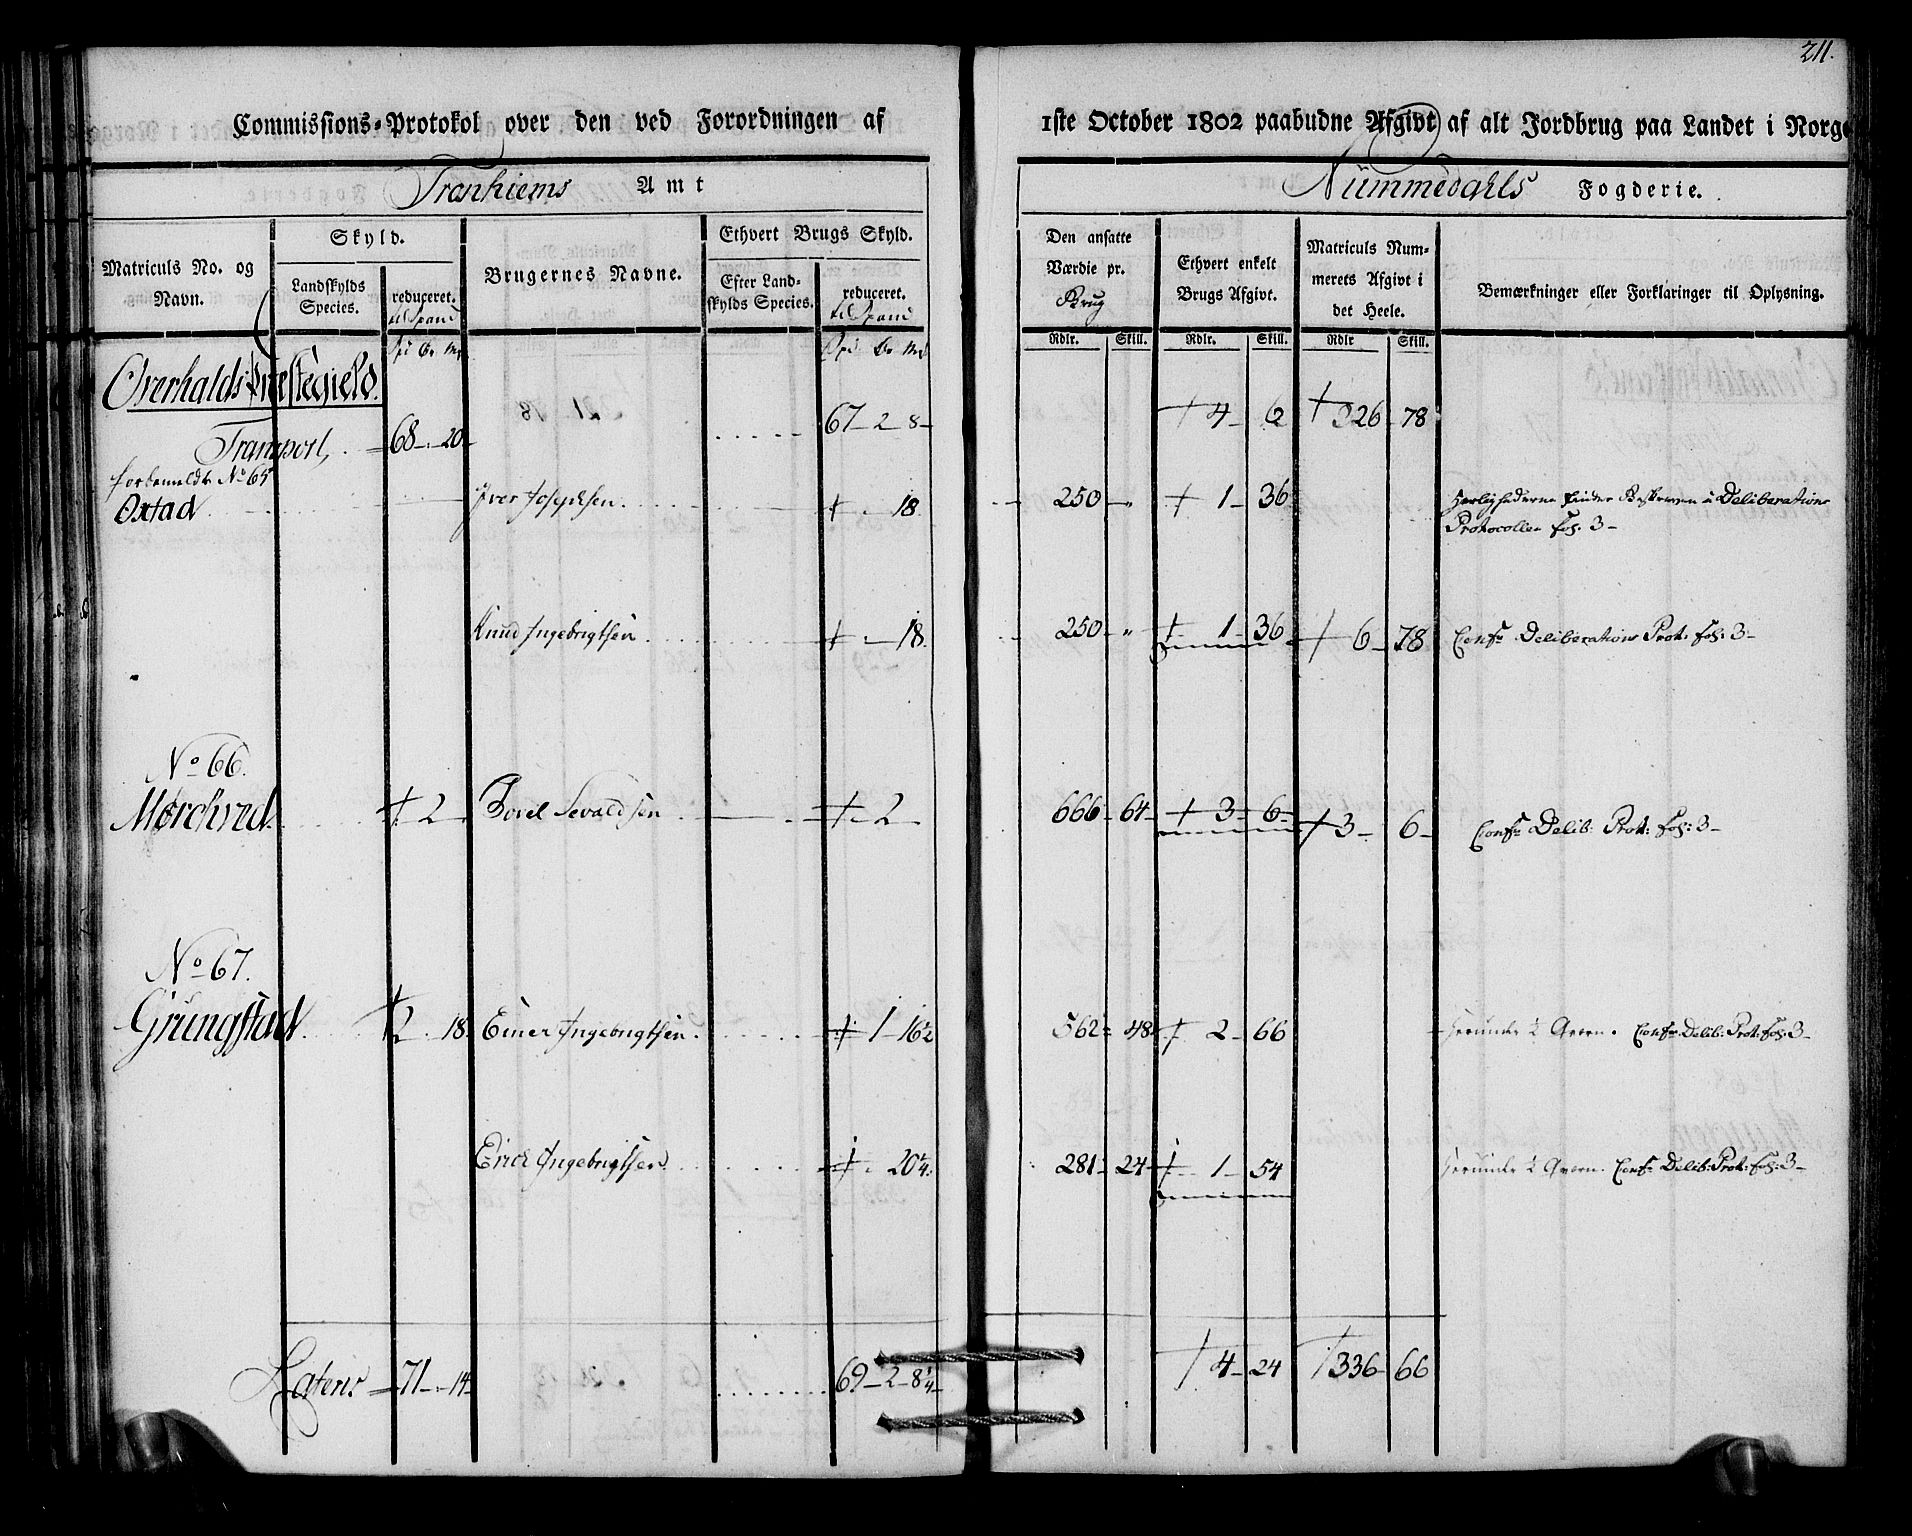 211.
Commissions-Protokol over den ved Forordningen af 1ste October 1802 paabudne Afgivt af alt Jordbrug paa Landet i Norge
Tronhiems Amt Nummedahls Fogderie.
Matriculs No. og Navn.
Skyld.
Landskylds Species.
reduceret. til Spand
Brugernes Navne.
Ethvert Brugs Skyld.
Efter Landskylds Species.
reduceret. til Spand
Den ansatte Værdie pr. Brug
Ethvert enkelt Brugs Afgivt.
Matriculs Nummerets Afgivt i det Heele.
Bemærkninger eller Forklaringer til Oplysning.
Rdlr. Skill. Rdlr. Skill. Rdlr Skill.
Overhalds Præstegield.
Transport, 68 - 20 67 - 2 - 8 - 4 - 62 326 - 78
forbemeldte No 65
Oxtad Iver Josephsen 18 250 - " 1 - 36 Herlighederne findes Beskreven i Deliberations
Protocollen Fol. 3 -
Knud Ingebrigtsen 18. 250 - " 1 - 36 6 - 78 Confr Deliberations Prot: Fol: 3 -
No 66.
Mørchved 2 Sevaldsen 2 666 - 64 3 - 6 3 - 6 - Confr Delib: Prot: Fol: 3 -
No 67.
Grungstad 2 . 18. Einer Ingebrigtsen. 1 - 16 1/2 562 - 48 2 - 66 Confr Delib: Prot: Fol: 3 -
Erich Ingebrigtsen 20 1/4. 281 - 24 1 - 54 Confr Delib: Prot: Fol: 3 -
Lateris 71 - 14 69 - 2 - 8 1/4 4 - 24 336 - 66